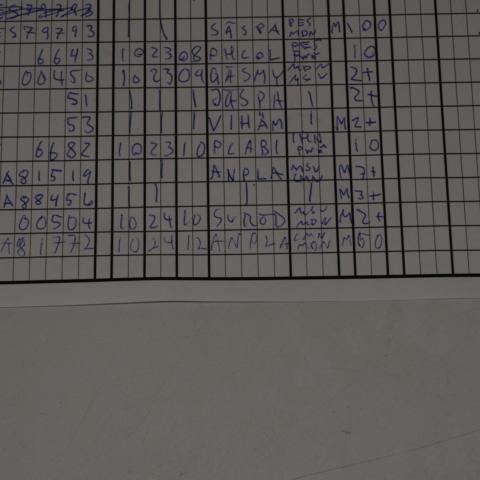 ES79793 | | SASPA PES MDN M100
6643 10 23 08 PHCOL 10
00450 10 23 09 GASMY 2+
51 | | | JASPA | 2+
53 | | | VIHAM | M2+
6682 10 23 10 PCABI 10
A81519 | | ANPLA MSV M7+
A88456 | | | | M3+
00504 10 24 10 SUROD MSV MDN M2+
A81772 10 24 12 ANPLA MDN M50